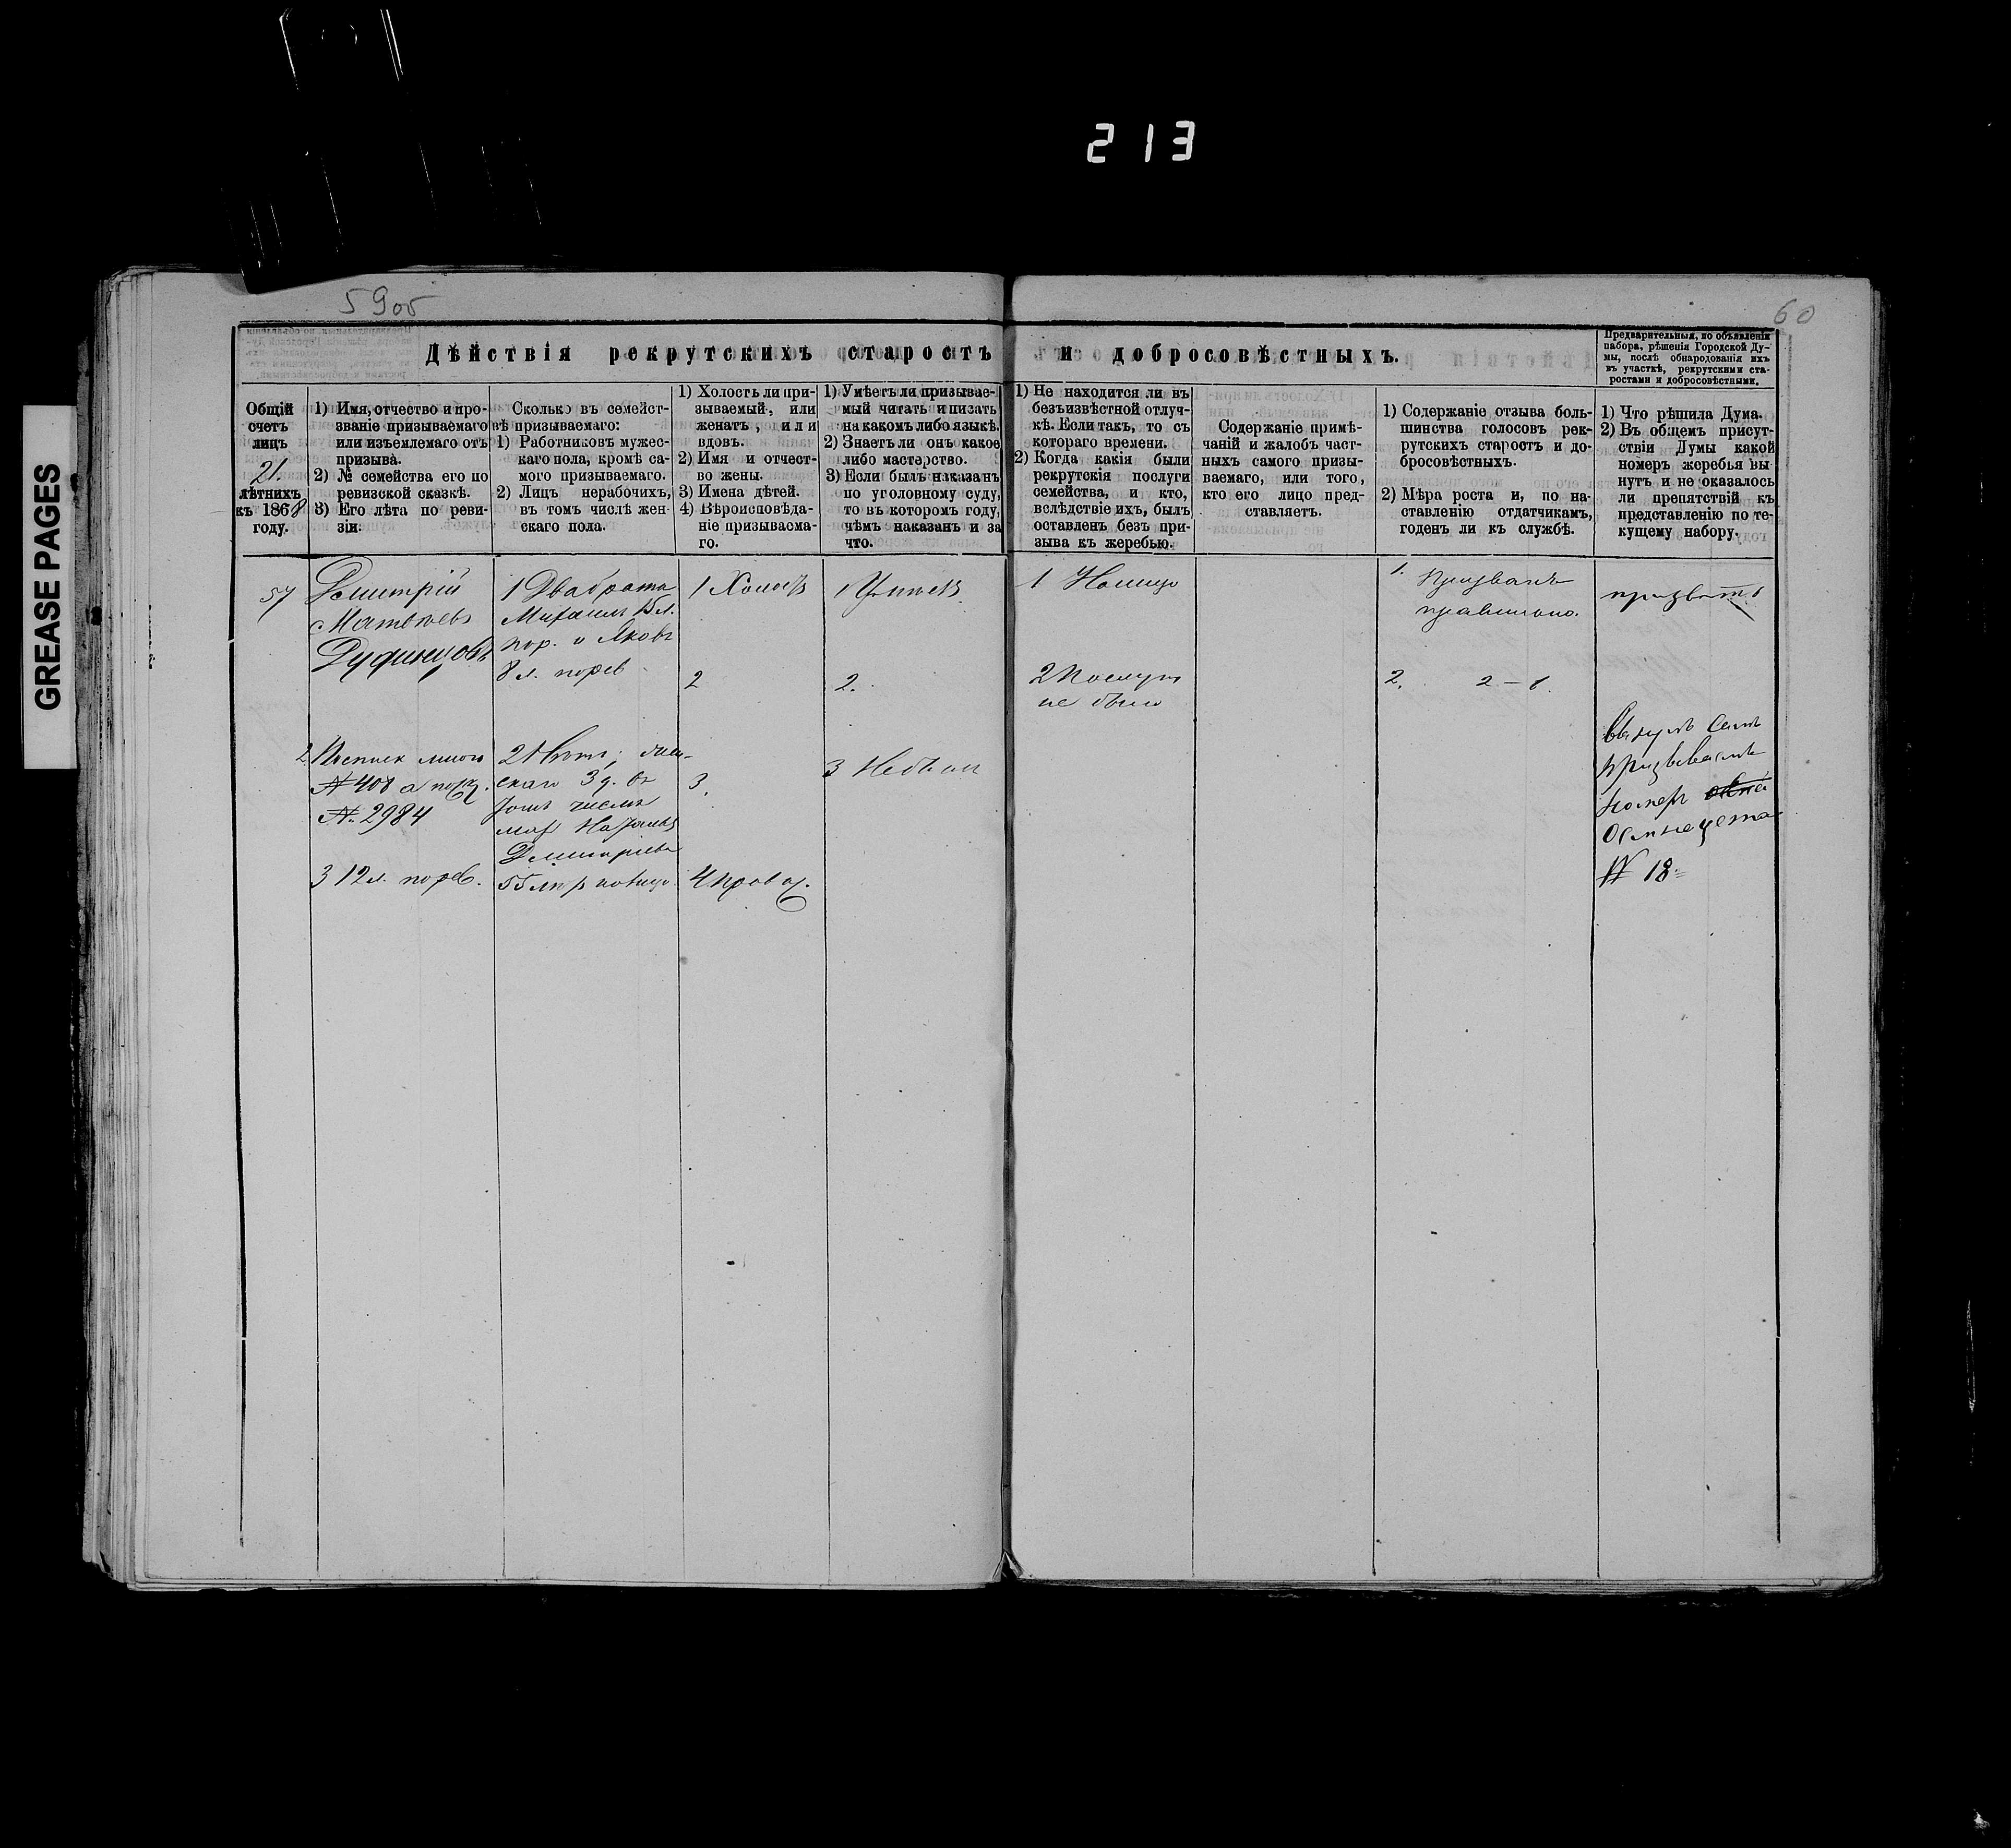 213
GREASE PAGES
59об
60
Дѣйствія рекрутскихъ старостъ и добросовѣстныхъ.
Предварительныя, по объявленіи
набора, рѣшенія Городской Ду-
мы, послѣ обнародованія ихъ
въ участкѣ, рекрутскими ста-
ростами и добросовѣстными.
Общій
счетъ
лицъ
21.
лѣтнихъ
къ 1868
году.
1) Имя, отчество и про-
званіе призываемаго
или изъемлемаго отъ
призыва.
2) № семейства его по
ревизской сказкѣ.
3) Его лѣта по реви-
зіи.
Сколько въ семейст-
вѣ призываемаго:
1) Работниковъ мужес-
каго пола, кромѣ са-
мого призываемаго.
2) Лицъ нерабочихъ,
въ томъ числѣ жен-
скаго пола.
1) Холостъ ли при-
зываемый, или
женатъ, или
вдовъ.
2) Имя и отчест-
во жены.
3) Имена дѣтей.
4) Вѣроисповѣда-
ніе призываема-
го.
1) Умѣетъ ли призывае-
мый читать и писать
на какомъ либо языкѣ.
2) Знаетъ ли онъ какое
либо мастерство.
3) Если былъ наказанъ
по уголовному суду,
то въ которомъ году,
чѣмъ наказанъ и за
что.
1) Не находится ли въ
безъизвѣстной отлуч-
кѣ. Если такъ, то съ
котораго времени.
2) Когда какія были
рекрутскія послуги
семейства, и кто,
вслѣдствіе ихъ, былъ
оставленъ безъ при-
зыва къ жеребью.
Содержаніе примѣ-
чаній и жалобъ част-
ныхъ самого призы-
ваемаго, или того,
кто его лицо пред-
ставляетъ.
1) Содержаніе отзыва боль-
шинства голосовъ рек-
рутскихъ старостъ и до-
бросовѣстныхъ.
2) Мѣра роста и, по на-
ставленію отдатчикамъ,
годенъ ли къ службѣ.
1) Что рѣшила Дума.
2) Въ общемъ присут-
ствіи Думы какой
номеръ жеребья вы-
нутъ и не оказалось
ли препятствій къ
представленію по те-
кущему набору.
57
Дмитрій
Матвѣевъ
2
№ 408 а
№ 2984
3 12 л. по рев.
1 Два брата
Михаилъ 15 л.
и Яковъ
8 л. по рев
2 Нѣтъ;
3 д. въ
томъ числѣ
Дмитріева
1 Холостъ
2
3.
4 Правос.
1 Умѣетъ
2.
3 Небылъ
1 Налицо
2 Послугъ
не было
1. Призванъ
правильно.
2. 2 – 1.
призвать
Вынулъ самъ
призываемый
номеръ
№ 18